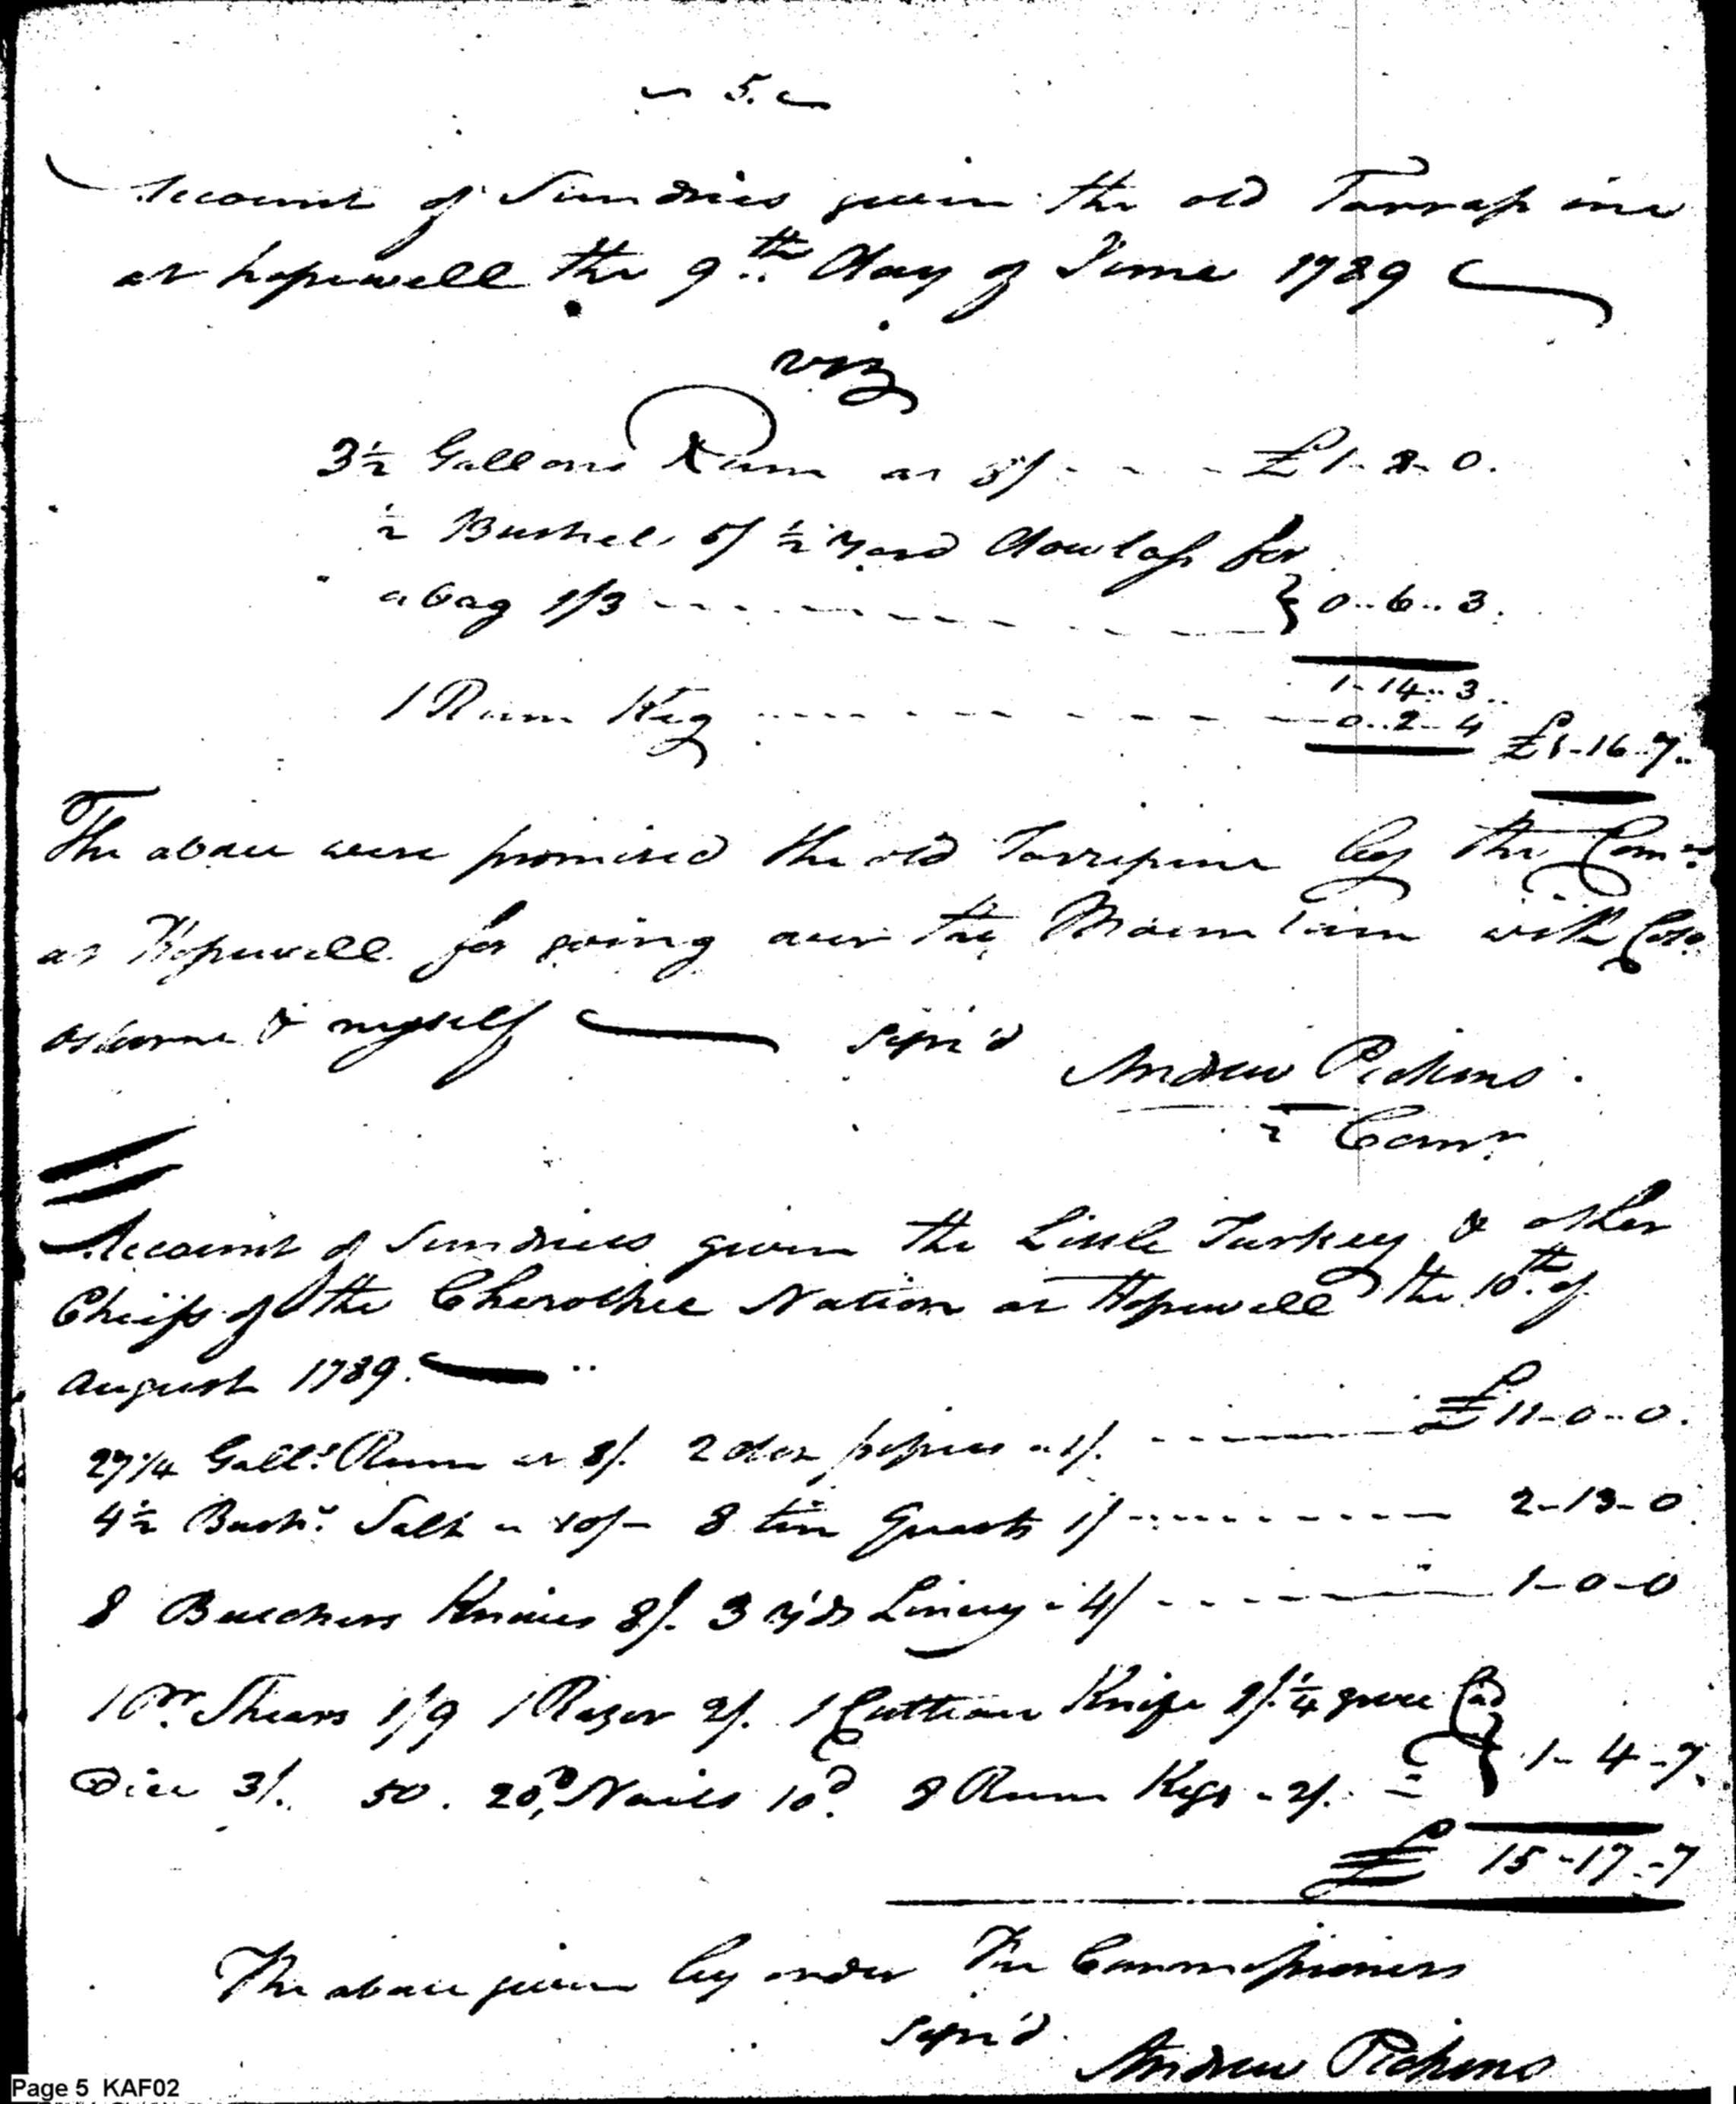 5.
Account of Sundries given the old Tarrapine
at hopewell the 9th day of June 1789
viz
3½ Gallons Rum at 8/ - - - £1-8-0.
½ Bushel 5/ ½ Yard dowlass for
a bag 1/3 - - - - } 0..6..3.
1-14..3..
1 Rum Keg - - - - 0..2-4 £1-16-7..
The above were promised the old Tarripine by the Comrs
at Hopewell for going over the Mountain with Colo.
Osborne & myself sign'd
Andrew Pickens.
Comr.
Account of Sundries given the Little Turkey & other
Chiefs of the Cherokee Nation at Hopewell the 10th of
August 1789.
27¼ Galls. Rum at 8/. 2 doz pipes a 1/. - - - £11-0-0.
4½ Bush. Salt a 10/- 8 tin Quarts 1/ - - - 2-13-0
8 Butchers Knives 8/. 3 y'ds Linsey a 4/ - - - 1-0-0
1 Pr. Shears 1/9 1 Razor 2/. 1 Cutteau Knife 2/. ¼
Dice 3/. 50. 20d, Nails 10d. 8 Rum Kegs a 2/. } 1-4-7.
£ 15-17-7
The above given by order The Commissioners
sign'd
Andrew Pickens
Page 5 KAF02